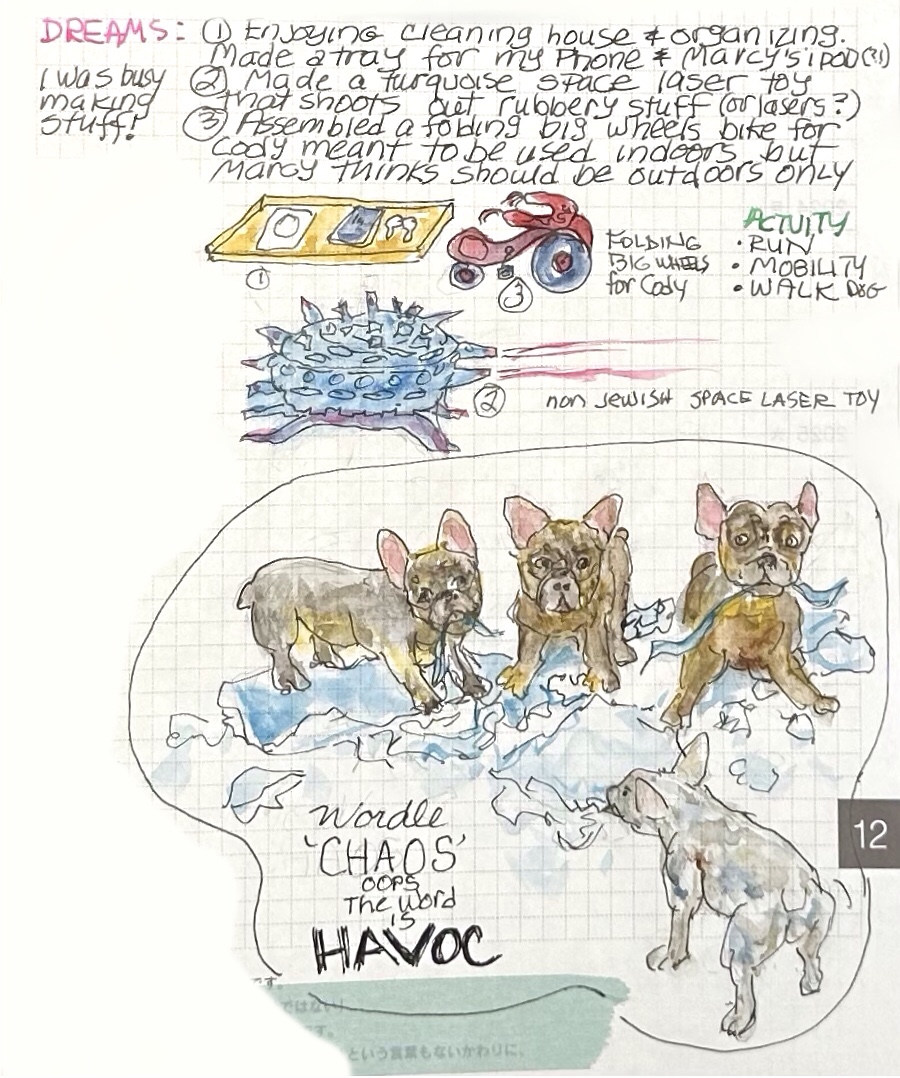 DREAMS: ① Enjoying cleaning house & organizing.
Made a tray for my Phone & Marcy's iPod(?!)
I was busy
making
stuff!
② Made a turquoise space laser toy
that shoots out rubbery stuff (or lasers?)
③ Assembled a folding big wheels bike for
Cody meant to be used indoors but
Marcy thinks should be outdoors only
①
③
FOLDING
BIG WHEELS
for Cody
ACTVITY
• RUN
• MOBILITY
• WALK DOG
②
non JEWISH SPACE LASER TOY
Wordle
'CHAOS'
OOPS
The word
is
HAVOC
12
です。
ではない
です。
という言葉もないかわりに、